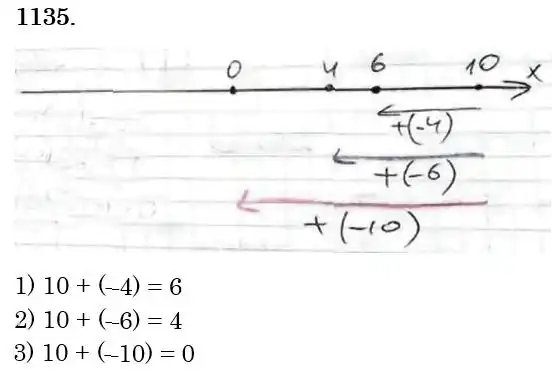 1135.
0 4 6 10 x
+(-4)
+(-6)
+(-10)
1) 10 + (–4) = 6
2) 10 + (–6) = 4
3) 10 + (–10) = 0